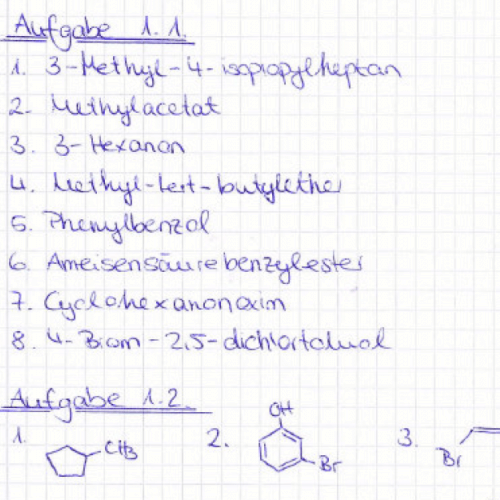 Aufgabe 1.1.
1. 3-Methyl-4-isopropylheptan
2. Methylacetat
3. 3-Hexanon
4. Methyl-tert-butylether
5. Phenylbenzol
6. Ameisensäurebenzylester
7. Cyclohexanonoxim
8. 4-Brom-2,5-dichlortoluol
Aufgabe 1.2.
1. CH3 2. OH Br 3. Br